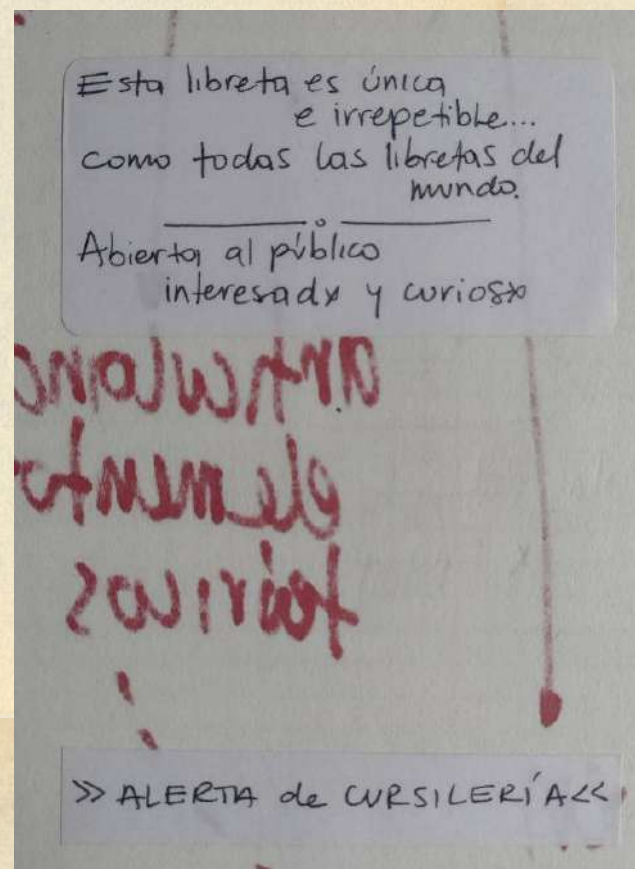 Esta libreta es única
e irrepetible...
como todas las libretas del
mundo.
Abierta al público
interesadx y curiosx
elemento
teóricos
>> ALERTA de CURSILERÍA <<